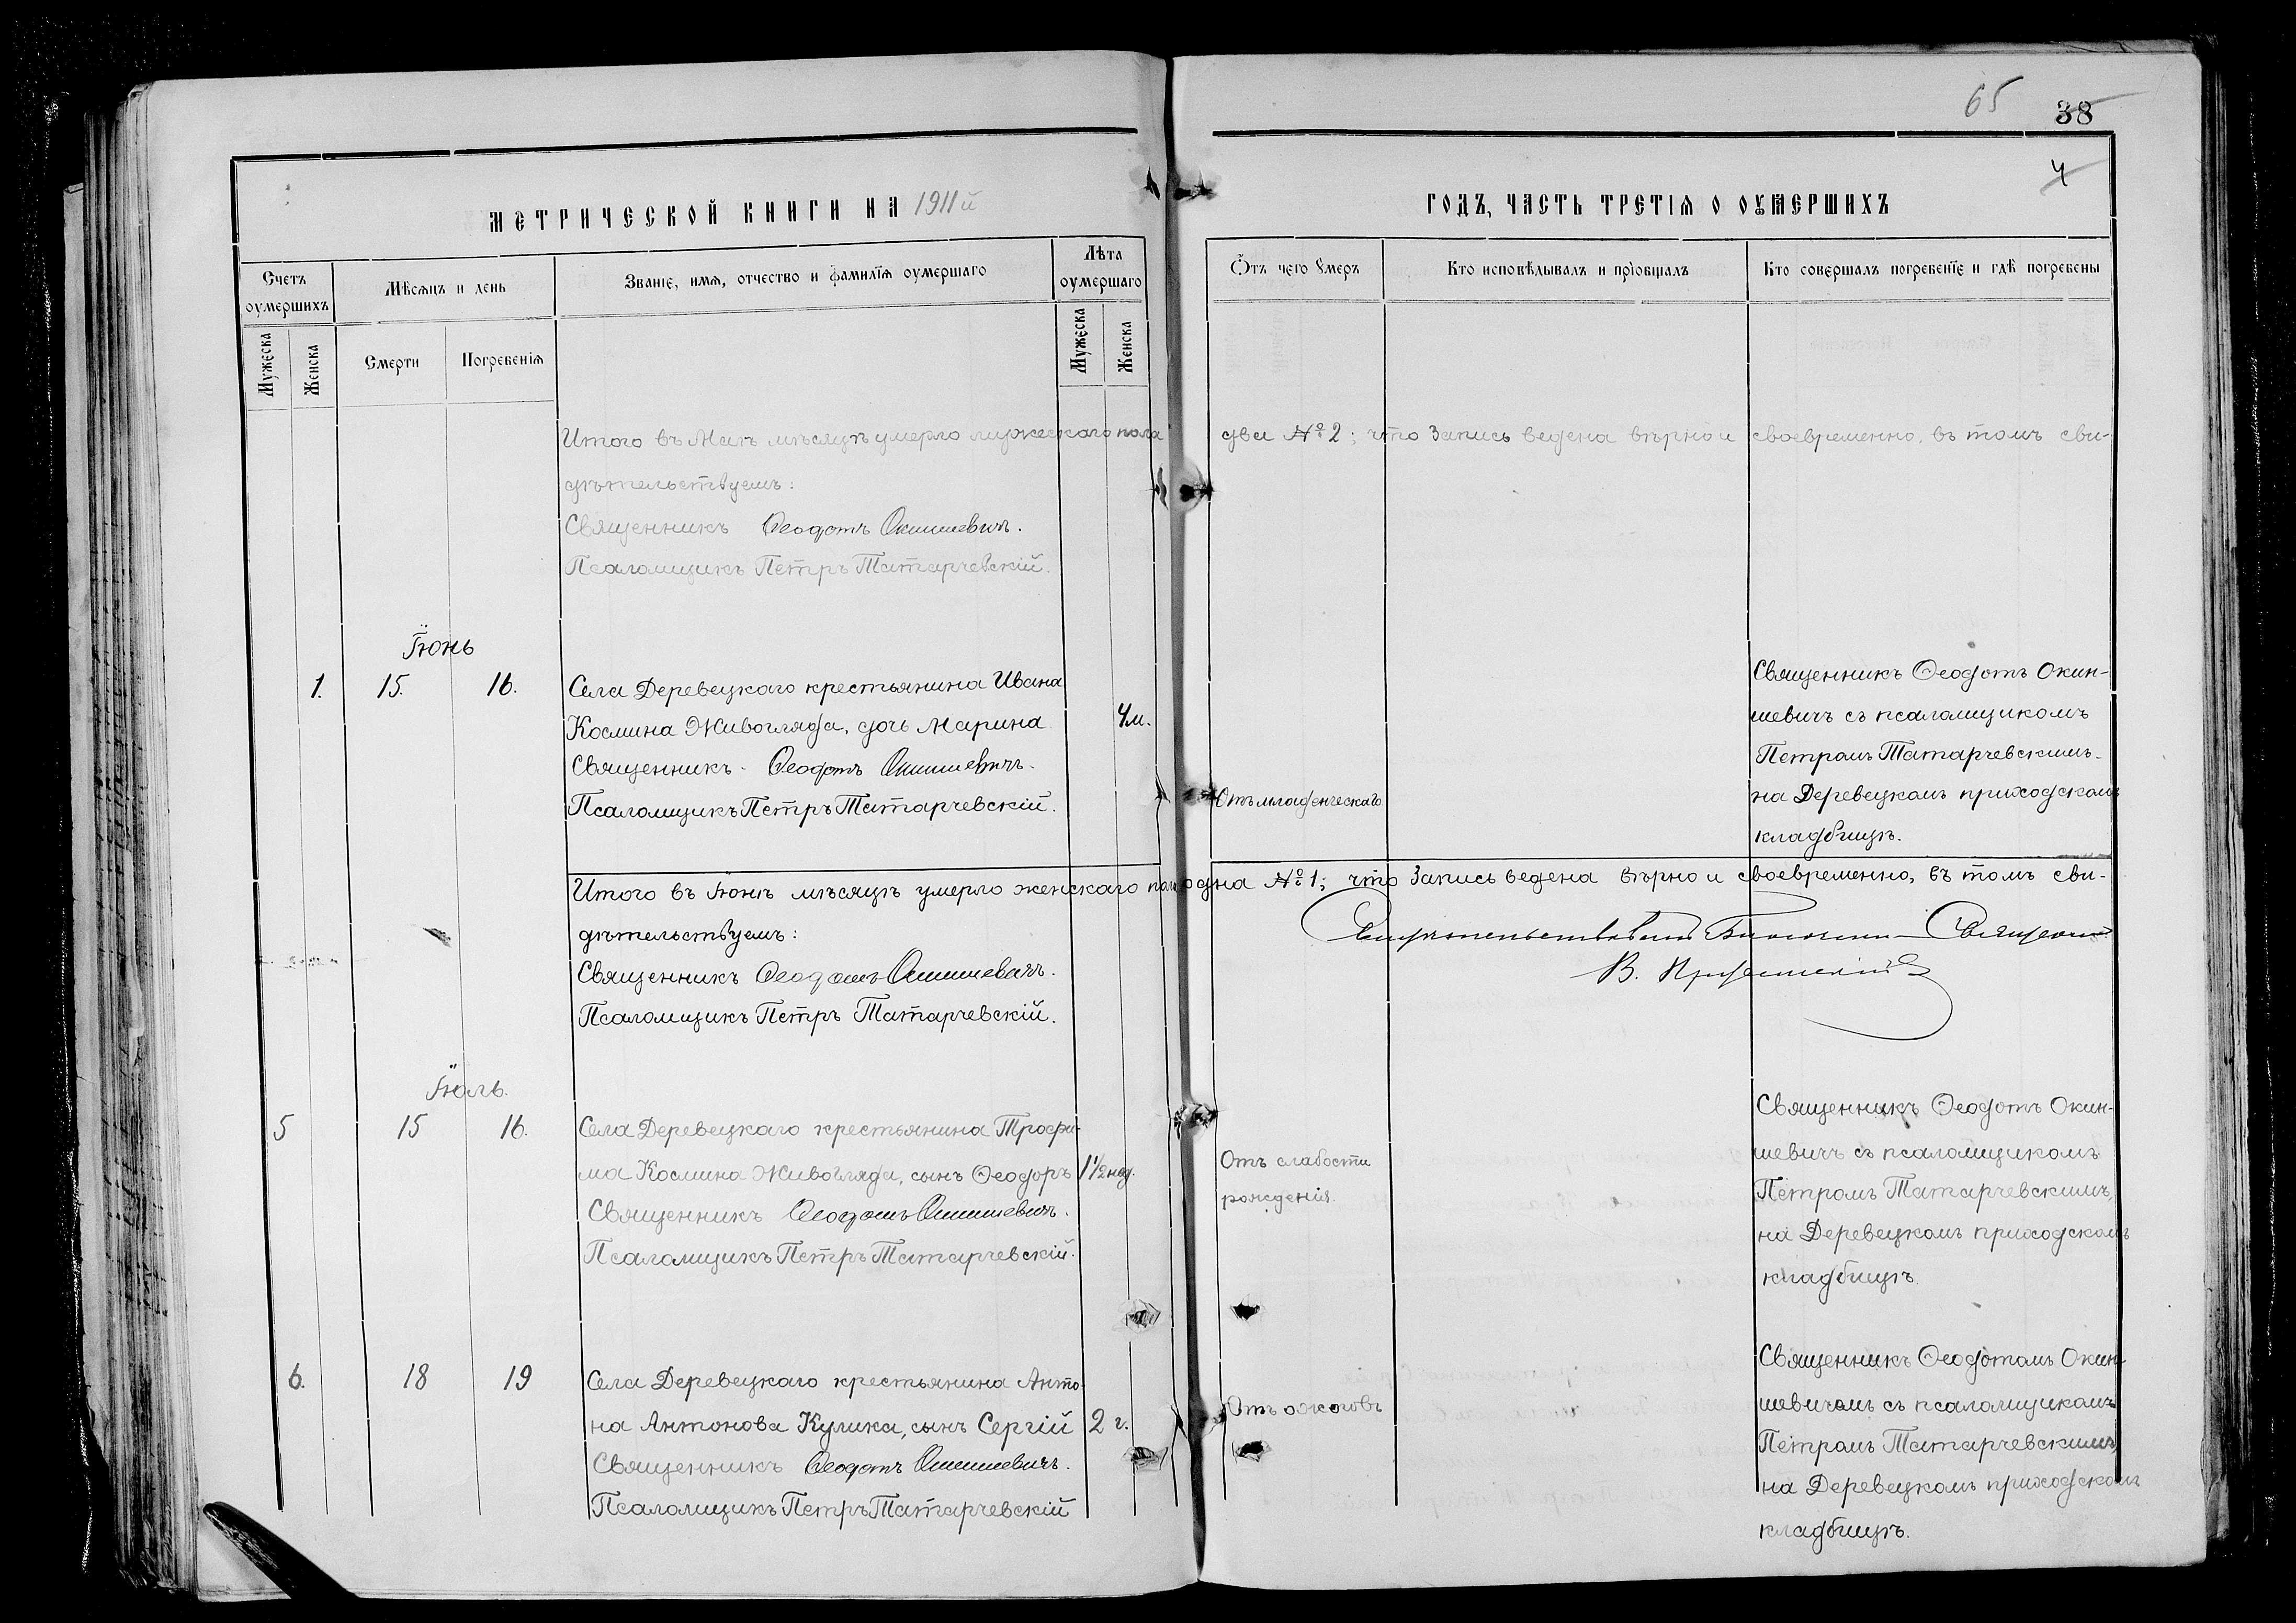 65
38
4
МЕТРИЧЕСКОЙ КНИГИ НА 1911й
ГОДЪ, ЧАСТЬ ТРЕТІЯ О ОУМЕРШИХЪ
Счетъ оумершихъ
Мѣсяцъ и день
Званіе, имя, отчество и фамилія оумершаго
Лѣта оумершаго
Мужеска
Женска
Смерти
Погребенія
Мужеска
Женска
Отъ чего умеръ
Кто исповѣдывалъ и пріобщалъ
Кто совершалъ погребеніе и гдѣ погребены
Итого въ Маѣ мѣсяцѣ умерло мужескаго пола два № 2; что запись ведена вѣрно и своевременно, въ томъ сви-
дѣтельствуемъ:
Священникъ Ѳеодотъ Окиншевичъ.
Псаломщикъ Петръ Татарчевскій.
Іюнь
1. 15. 16.
Села Деревецкаго крестьянина Ивана
Космина Живогляда, дочь Марина
4 м.
Священникъ Ѳеодотъ Окиншевичъ.
Псаломщикъ Петръ Татарчевскій.
Отъ младенческаго
Священникъ Ѳеодотъ Окин-
шевичъ съ псаломщикомъ
Петромъ Татарчевскимъ
на Деревецкомъ приходскомъ
кладбищѣ.
Итого въ Іюнѣ мѣсяцѣ умерло женскаго пола одна № 1; что запись ведена вѣрно и своевременно, въ томъ сви-
дѣтельствуемъ:
Священникъ Ѳеодотъ Окиншевичъ.
Псаломщикъ Петръ Татарчевскій.
Свидѣтельствовалъ Священникъ
В.
Іюль.
5 15 16.
Села Деревецкаго крестьянина Трофи-
ма Космина Живогляда, сынъ Ѳеодоръ
1 1/2 нед.
Священникъ Ѳеодотъ Окиншевичъ.
Псаломщикъ Петръ Татарчевскій.
Отъ слабости
рожденія.
Священникъ Ѳеодотъ Окин-
шевичъ съ псаломщикомъ
Петромъ Татарчевскимъ,
на Деревецкомъ приходскомъ
кладбищѣ.
6. 18 19
Села Деревецкаго крестьянина Анто-
на Антонова Кулика, сынъ Сергій
2 г.
Священникъ Ѳеодотъ Окиншевичъ.
Псаломщикъ Петръ Татарчевскій
Отъ ожоговъ
Священникъ Ѳеодотомъ Окин-
шевичемъ съ псаломщикомъ
Петромъ Татарчевскимъ,
на Деревецкомъ приходскомъ
кладбищѣ.